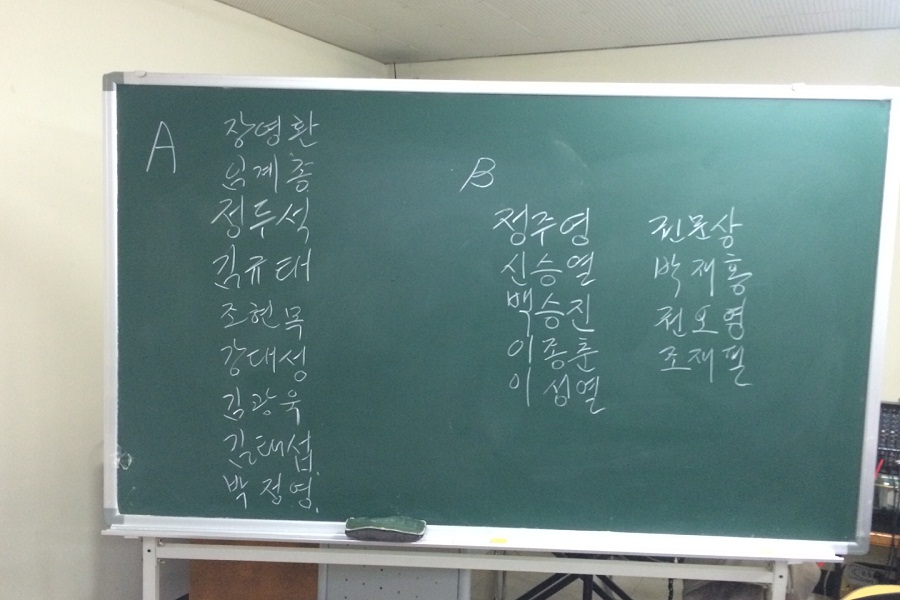 A
장영환
임계종
정두석
김규태
조현목
강대성
김광욱
김태섭
박정영
B
정주영
신승열
백승진
이종훈
이성열
권문상
박재홍
전오영
조재필